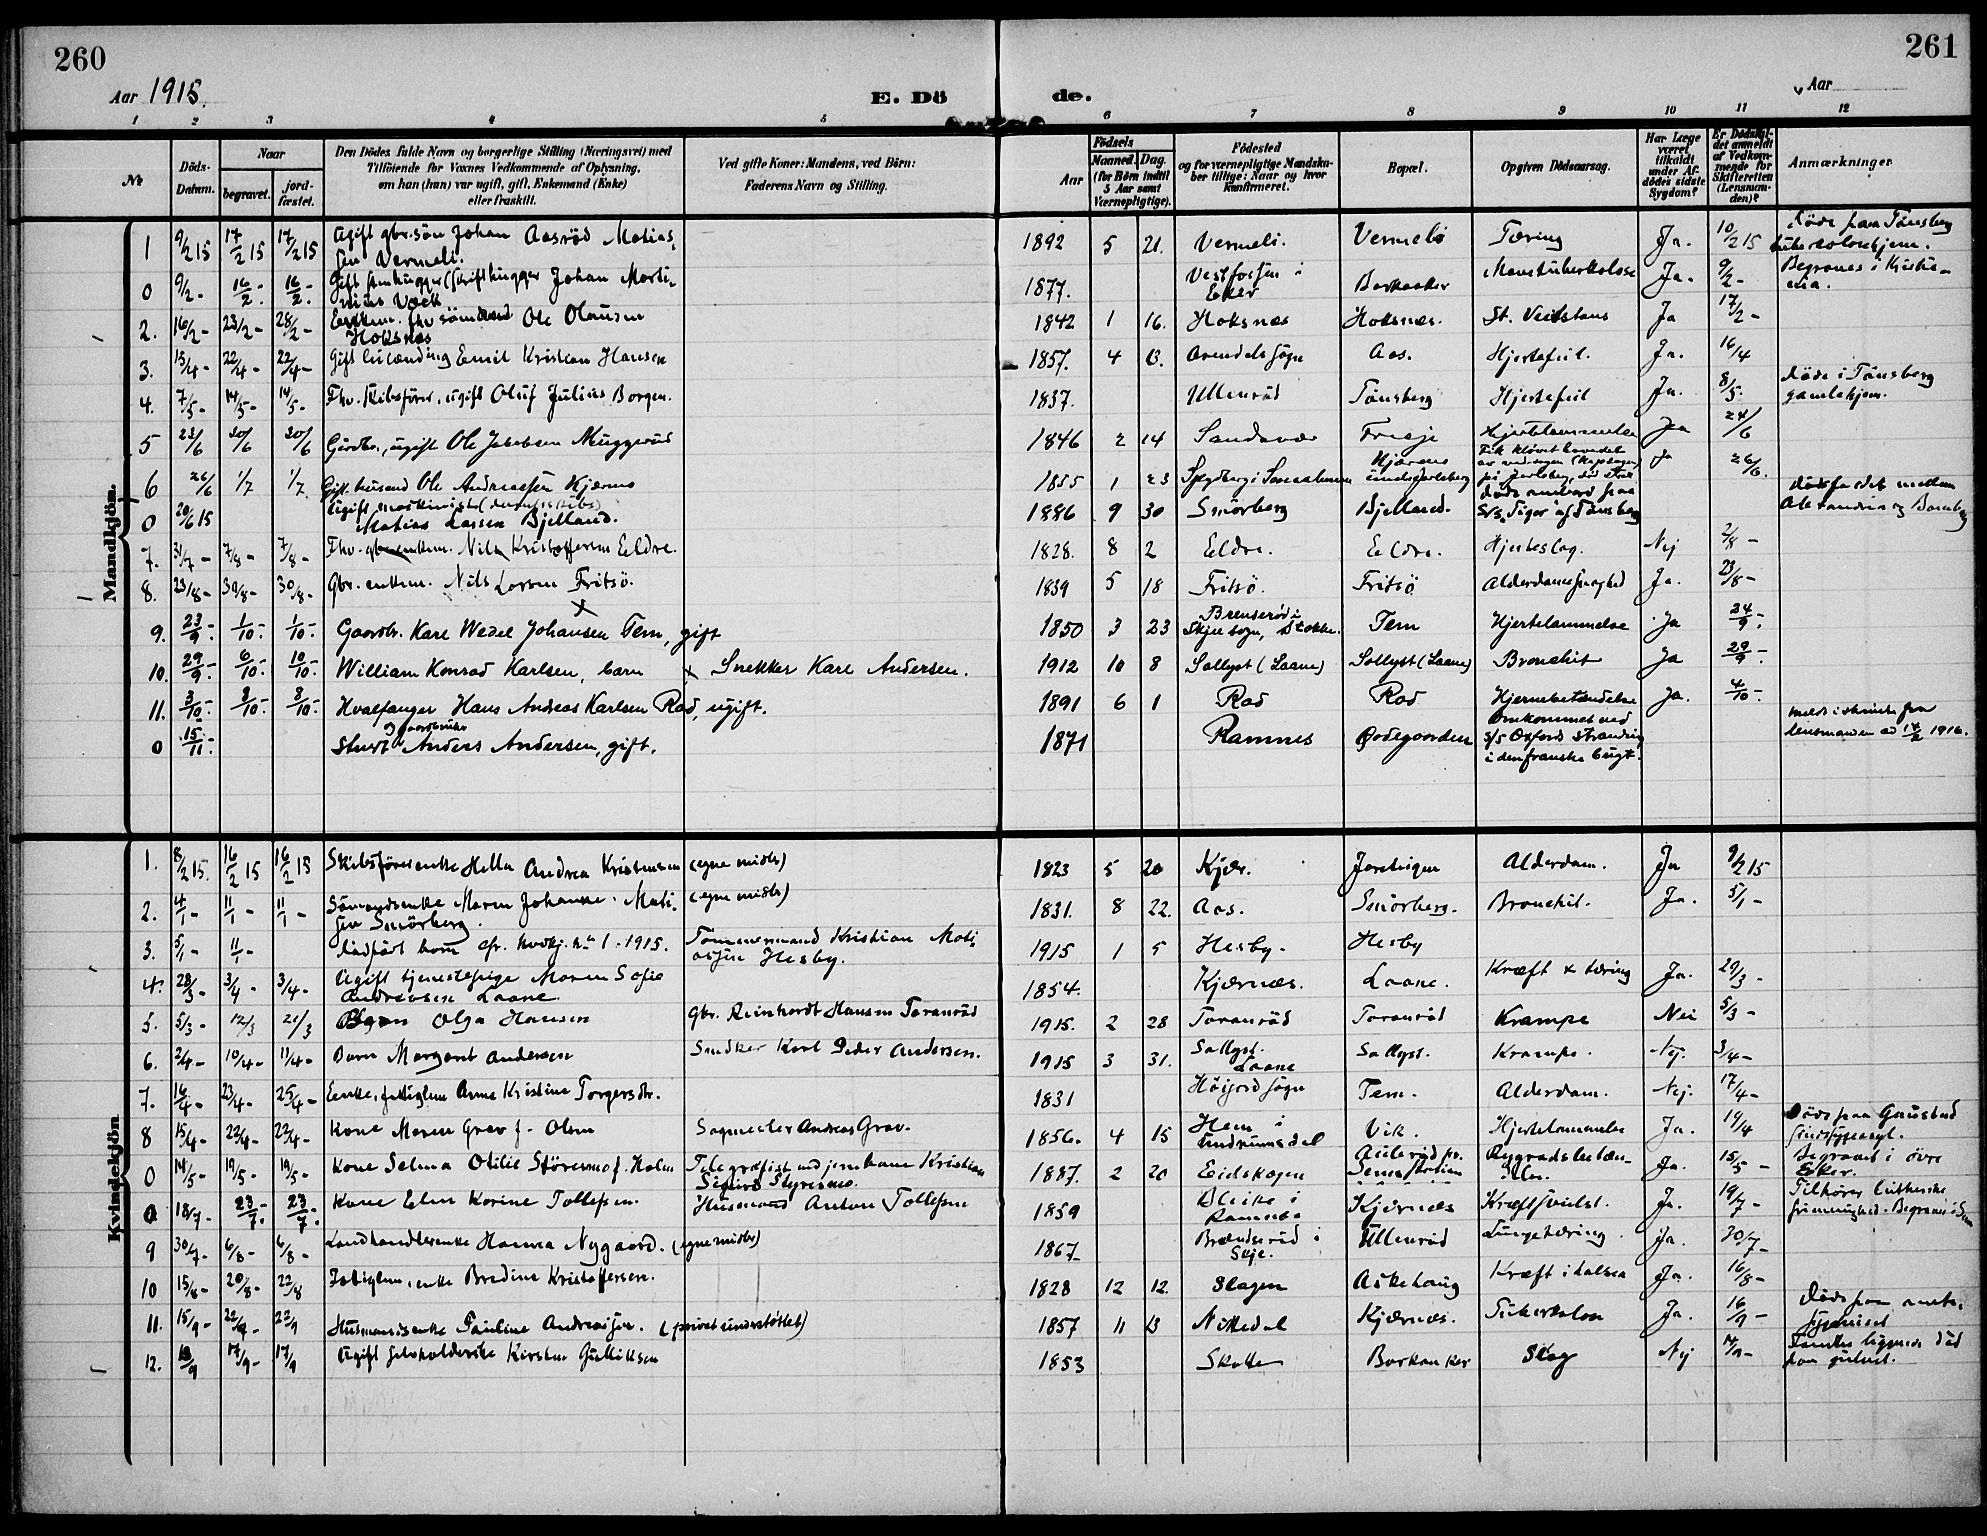 260
261
Aar 1915.
E. Dö
de.
Aar
1 2 3 4 5 6 7 8 9 10 11 12
No
Döds-
Datum.
Naar
begravet.
jord-
fæstet.
Den Dödes fulde Navn og borgerlige Stilling (Næringsvei) med
Tilföiende for Voxnes Vedkommende af Oplysning,
om han (hun) var ugift, gift, Enkemand (Enke)
eller fraskilt.
Ved gifte Koner: Mandens, ved Börn:
Faderens Navn og Stilling.
Födsels
Aar
Maaned. Dag.
(for Börn indtil
5 Aar samt
Værnepligtige).
Födested
og for værnepligtige Mandska-
ber tillige: Naar og hvor
konfirmeret.
Bopæl.
Opgiven Dödsaarsag.
Har Læge
været
tilkaldt
under Af-
dödes sidste
Sygdom?
Er Dödsfal-
det anmeldt
af Vedkom-
mende for
Skifteretten
(Lensman-
den)?
Anmærkninger.
Mandkjön.
1 9/2 15 17/2 15 17/2 15 Ugift gbr.sön Johan Aasröd Matias- 1892 5 21. Vermelö. Vermelö Tæring Ja. 10/2 15 Döde paa Tönsberg
sen Vermelö. tuberkulosehjem.
0 9/2 - 16/2 - 16/2 - Gift stenhugger (skrifthugger Johan Marti- 1877. Vestfossen i Barkaaker Ja. 9/2 - Begraves i Kristia-
nius Væck Eker nia.
2. 16/2 - 23/2 - 28/2 - Enkem. fhv sömand Ole Olausen 1842 1 16. Hoksnæs Hoksnæs. St. Veitsdans Ja 17/2 -
Hoksnæs
3. 15/4 - 22/4 - 22/4 - Gift Emil Kristian Hansen 1857. 4 13. Arendals sogn Aas. Hjertefeil. Ja. 16/4
4. 7/5 - 14/5 - 14/5 - Fhv. skibsförer, ugift Oluf Julius Borgen. 1837. Ullenröd Tönsberg Hjertefeil Ja. 8/5. Döde i Tönsberg
gamlehjem.
5 23/6 30/6 30/6 Gårdbr., ugift Ole Jakobsen Muggerud 1846 2 14 Sandsvær Freste Hjertelammelse Ja 24/6
6 26/6 1/7 1/7. Gift husmand Ole Andreassen Kjærnes 1855 1 23 Spydberg i Smaalenene Kjærnes Fik klövet hovedet Ja 26/6.
under Jarlsberg
0 20/6 15 Ugift, maskinist (dampskibs) 1886 9 30 Smörberg Bjelland. döde ombord paa Dödsfaldet mellem
Matias Larsen Bjelland. S/S. Tiger af Tönsberg Alexandria og Bombay
7. 31/7 - 7/8 - 7/8 - Fhv. gbr enkem. Nils Kristoffersen Eeldre. 1828. 8 2 Eeldre. Eeldre. Hjerteslag. Nej 2/8 -
8. 23/8 - 30/8 - 30/8 - Gbr. enkem. Nils Larsen Fritsö. 1839 5 18 Fritsö. Fritsö Alderdomssvaghed Ja. 23/8 -
9. 23/9 - 1/10 - 1/10 - Gaardbr. Karl Wedel Johansen Tem, gift 1850 3 23 Brenseröd i Tem Hjertelammelse Ja 24/9 -
Skjee sogn, Stokke.
10. 29/9 - 6/10 - 10/10 - William Konrad Karlsen, barn x Snekker Karl Andersen. 1912 10 8 Sollyst (Laane) Sollyst (Laane) Bronchit Ja 29/9 -
11. 3/10 - 8/10 - 8/10 - Hvalfanger Hans Andreas Karlsen Rad, ugift. 1891 6 1 Rad Rad Hjernebetændelse Ja. 4/10 -
0 15/11 - og gaardbruker Stuert Anders Andersen, gift. 1871 Ramnes Ødegaarden Omkommet ved
S/S Oxford stranding
i den franske bugt.
meld. i skrivelse fra
lensmanden ad 14/2 1916.
Kvindekjön
1. 8/2 15. 16/2 15 16/2 15 Skibsförerenke Hella Andrea Kristensen (egne midler) 1823 5 20 Kjær. Jareteigen Alderdom. Ja 9/2 15
2. 4/1 - 11/1 - 11/1 - Sömandsenke Maren Johanne Mati- (egne midler) 1831. 8 22. Aas. Smörberg. Bronchit. Ja. 5/1 -
sen Smörberg.
3. 5/1 - 11/1 - Dödfödt barn cfr. kvdkj. no 1 - 1915. Tömmermand Kristian Mati- 1915 1 5 Hesby. Hesby
assen Hesby.
4. 28/3 - 3/4 - 3/4 - Ugift tjenestepige Maren Sofie 1854. Kjærnæs. Laane. Kræft x tæring Ja. 29/3 -
Andreasen Laane
5. 5/3 - 12/3 21/3 Barn Olga Hansen Gbr. Reinhardt Hansen Taranröd 1915. 2 28 Taranröd Taranröd Krampe Nei 5/3 -
6. 2/4 - 10/4 - 11/4 - Barn Margaret Andersen Snekker Karl Peder Andersen. 1915 3 31. Sollyst. Sollyst. Krampe. Nej. 3/4 -
Laane
7. 16/4 - 23/4 - 25/4 - Enke, fattiglem Anne Kristine Torgersdtr. 1831 Höijord sogn Tem. Alderdom. Nej. 17/4 -
8 15/4 - 22/4 - 22/4 - Kone Maren Grav f. Olsen Sagmester Andreas Grav. 1856. 4 15 Hem i Vik. Hjertelammelse Ja. 19/4 Döde paa Gaustad
Undrumsdal sindssygeasyl.
0 14/5 - 19/5 - 19/5 - Kone Selma Otilie Störesmo f. Holm Telegrafist ved jernbane Kristian 1887. 2 20 Eidskogen Rygradsbetæn- Ja. 15/5 - Begravet i övre
Sigurd Styrismo. delse. Eker.
0 18/7 - 23/7 - 23/7 - Kone Elen Karine Tollefsen. Husmand Anton Tollefsen 1859 Bleike i Kjærnæs Kræftsvulst. Ja. 19/7 - Tilhörer lutherske
Ramnes frimenighed.
9 30/7 - 6/8 - 6/8 - Landhandlerenke Hanna Nygaard. (egne midler) 1867 Brændseröd i Ullenröd Lungetæring. Ja. 30/7 -
Skje.
10 15/8 - 20/8 - 22/8 Fattiglem, enke Bredine Kristoffersen. 1828 12 12. Slagen Askehaug Kræft i halsen Ja. 16/8 -
11. 15/9 - 22/9 - 22/9 Husmandsenke Pauline Andreassen. (privat understöttet) 1857 11 13 Nittedal Kjærnæs. Tuberkulose Ja. 16/9 - Döde paa amts-
sygehuset
12. 12/9 17/9 - 17/9 Ugift Kirstine Gulliksen 1853 Skatte Barkaaker Slag Nej 14/9 - Fandtes liggende död
paa gulvet.